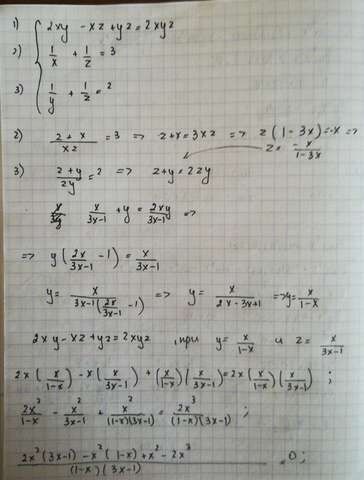 1) { 2xy - xz + yz = 2xyz
2) 1/x + 1/z = 3
3) 1/y + 1/z = 2
2) (z + x)/(xz) = 3 => z + x = 3xz => z(1 - 3x) = -x =>
z = -x/(1 - 3x)
3) (z + y)/(zy) = 2 => z + y = 2zy
x/(3x-1) + y = 2xy/(3x-1) =>
=> y(2x/(3x-1) - 1) = x/(3x-1)
y = x/(3x-1(2x/(3x-1) - 1)) => y = x/(2x - 3x + 1) => y = x/(1-x)
2xy - xz + yz = 2xyz, при y = x/(1-x) и z = x/(3x-1)
2x(x/(1-x)) - x(x/(3x-1)) + (x/(1-x))(x/(3x-1)) = 2x(x/(1-x))(x/(3x-1)) ;
2x²/(1-x) - x²/(3x-1) + x²/((1-x)(3x-1)) = 2x³/((1-x)(3x-1)) ;
(2x²(3x-1) - x²(1-x) + x² - 2x³)/((1-x)(3x-1)) = 0 ;